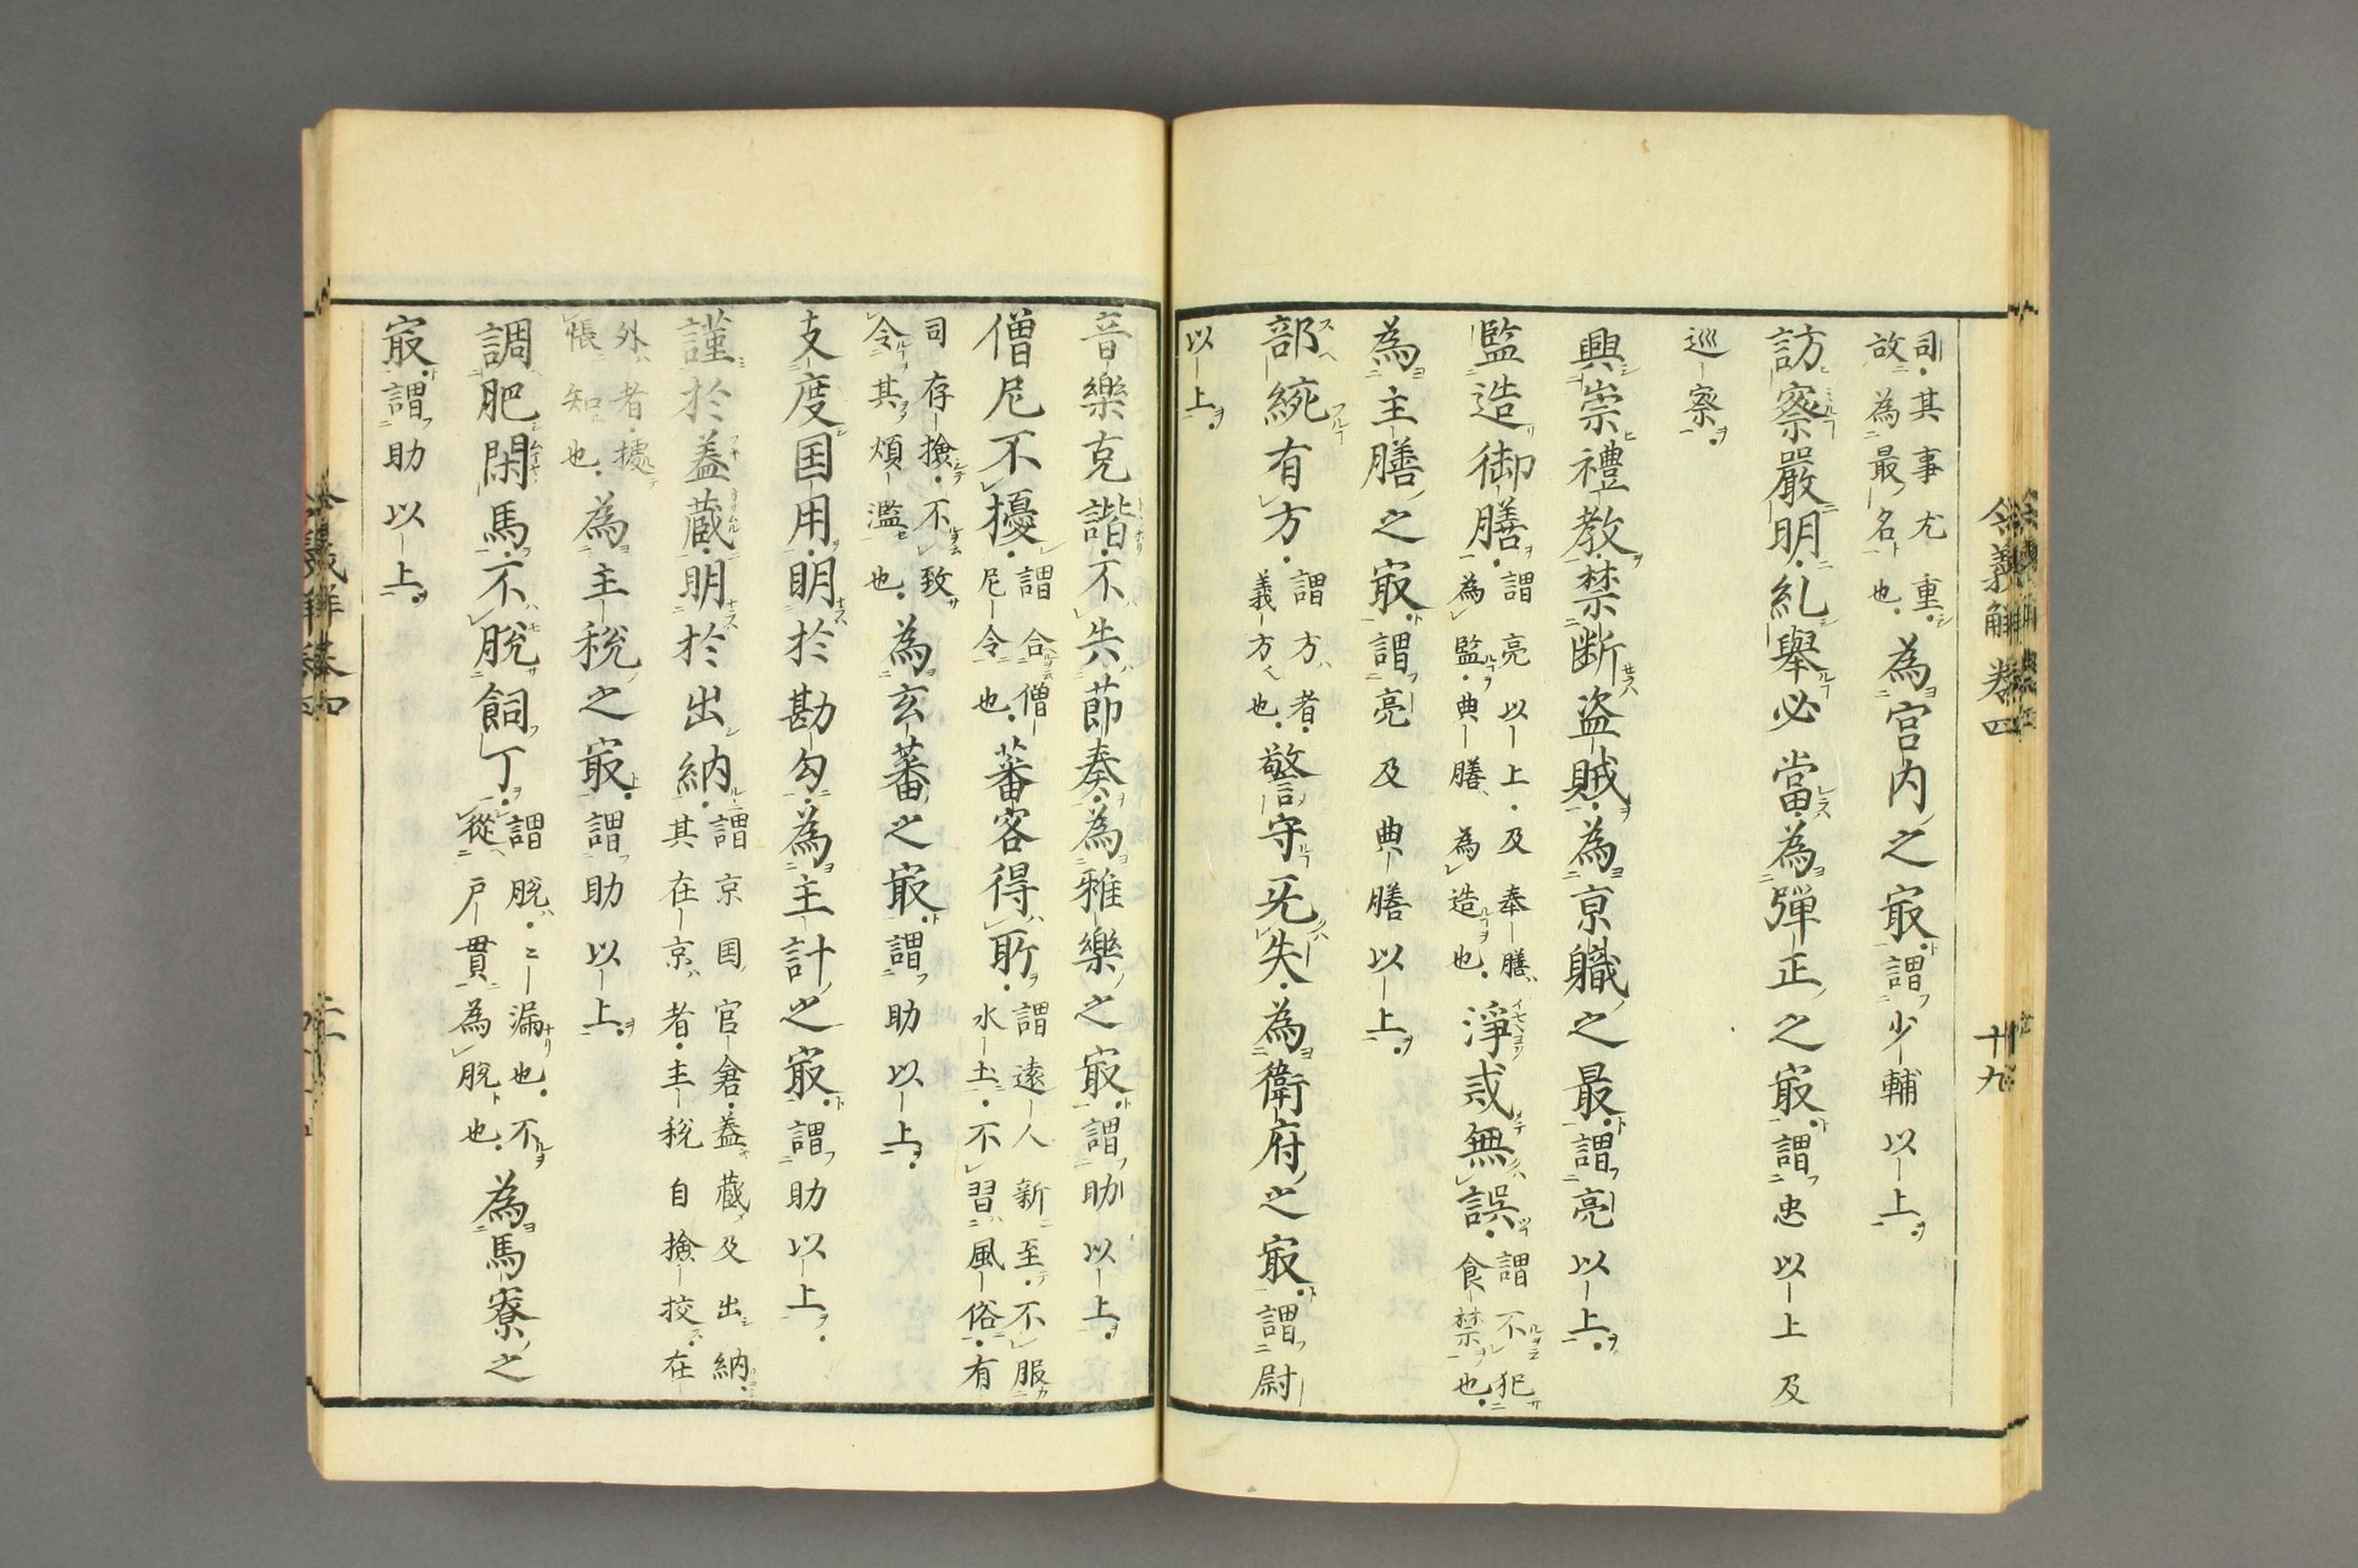 司其事尤重
故為最名也
為宮内之㝡謂少輔以上
訪察嚴明糺舉必當為彈正之㝡謂忠以上及
巡察
興崇禮教禁断盗賊為京職之最謂亮以上
監造御膳
謂亮以上及奉膳
為監典膳為造也
淨戒無誤
謂不犯
食禁也
為主膳之㝡謂亮及典膳以上
部統有方
謂方者
義方也
警守无失為衛府之㝡謂尉
以上
令義解卷四
十九
音樂克諧不失莭奏為雅樂之㝡謂助以上
僧尼不擾
謂合僧
尼令也
蕃客得所
謂遠人新至不服
水土不習風俗有
司存撿不致
令其煩濫也
為玄蕃之㝡謂助以上
支度国用明於勘勾為主計之㝡謂助以上
謹於蓋蔵明於出納
謂京国官倉蓋蔵及出納
其在京者主税自撿挍在
外者據
帳知也
為主税之㝡謂助以上
調肥閑馬不脱飼丁
謂脱二漏也不
從戸貫為脱也
為馬寮之
㝡謂助以上